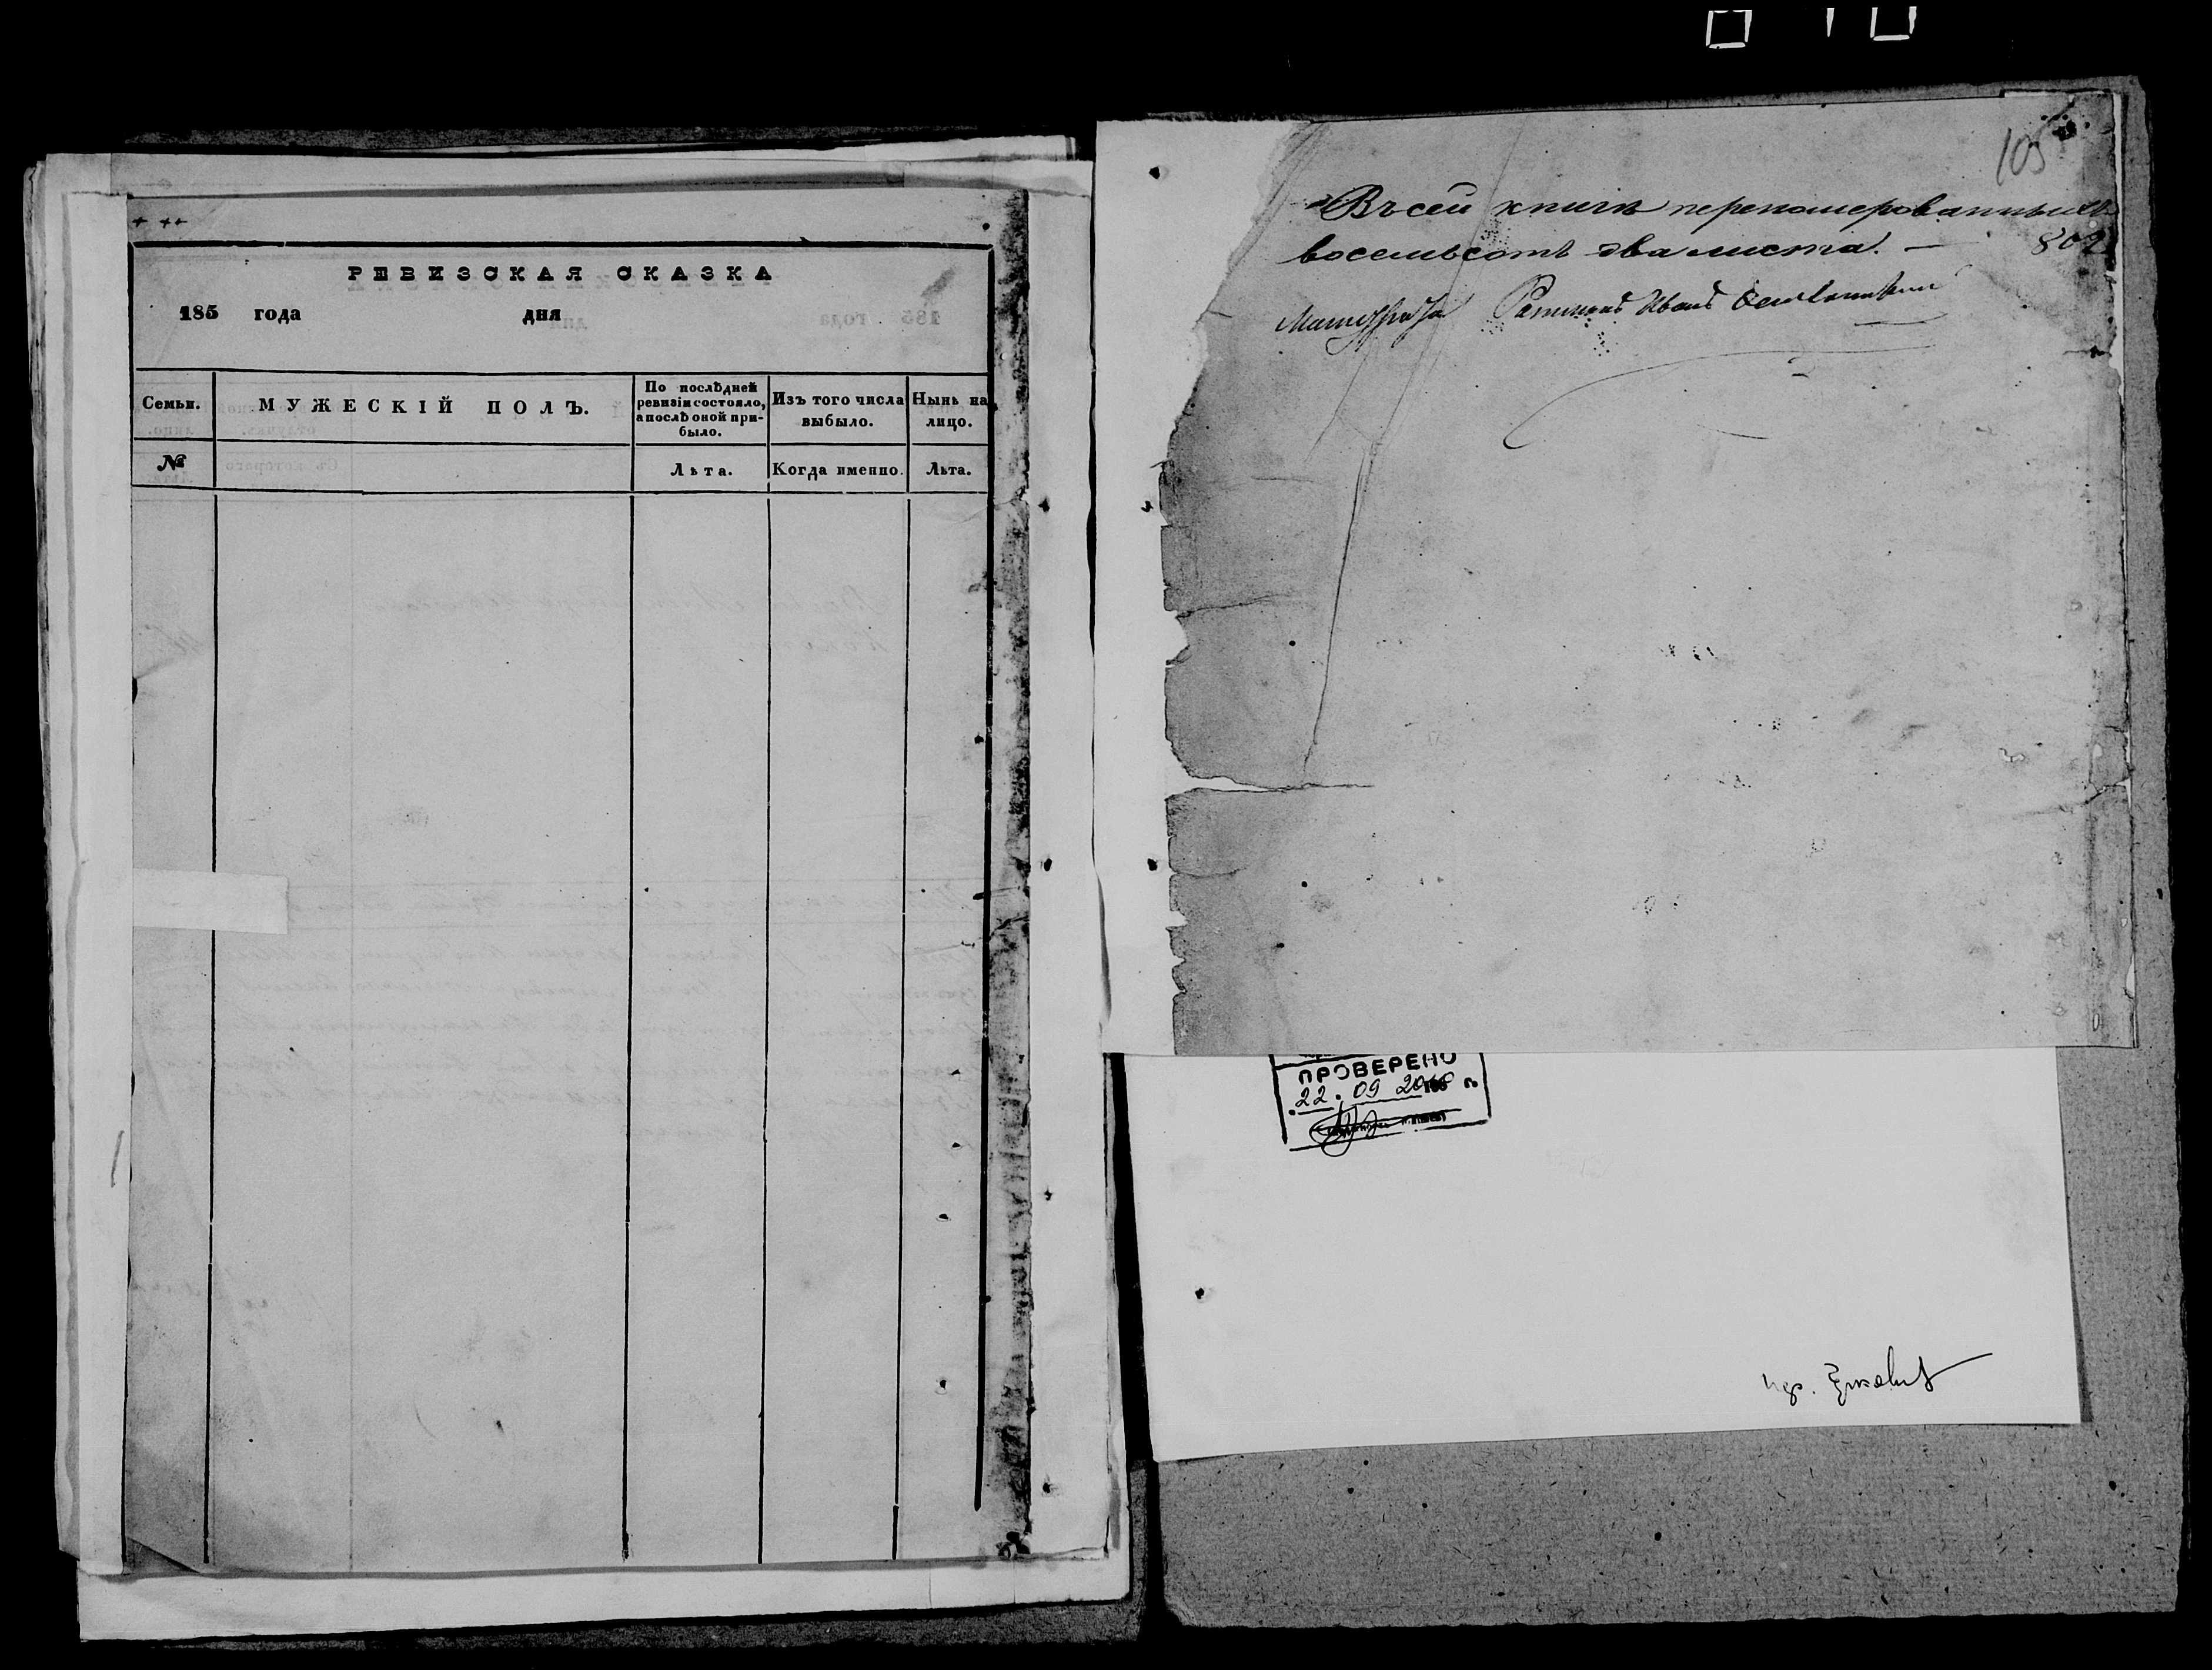 РЕВИЗСКАЯ СКАЗКА
185 года дня
Семьи.
МУЖЕСКІЙ ПОЛЪ.
По послѣдней
ревизіи состояло,
а послѣ оной при-
было.
Изъ того числа
выбыло.
Нынѣ на
лицо.
№
Лѣта.
Когда именно.
Лѣта.
105
Въ сей книгѣ переномерованныхъ
восемьсотъ два листа. — 802
Иванъ
ПРОВЕРЕНО
22. 09 20